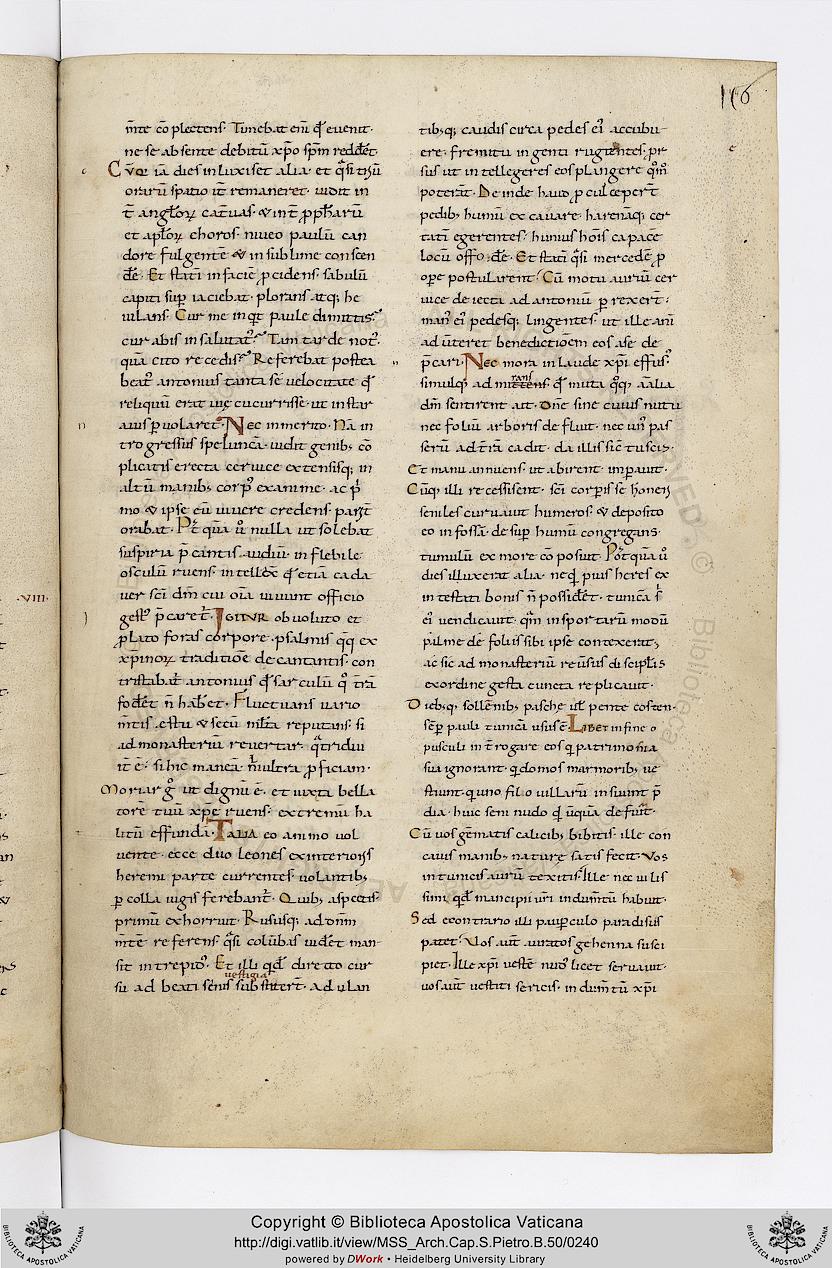 116
m̄te cōplectens. Timebat eni qđ evenit.
ne se absente debitū xp̄o sp̄m reddēt.
Cūq; iā dies inluxiset alia. et q̄si triū
orarū spatio it̄ remaneret. vidit in
t̄ angl̄oꝝ cat̄vas. & int̄ pp̄harū
et apl̄oꝝ choros. niveo paulū can
dore fulgentē & in sublime conscen
dēt. Et statī in faciē p̄cidens. sabulū
capiti sup iaciebat. plorans atq; he
iulans. Cur me inqt paule dimittis.
cur abis insalutat᾽. Tam tarde not᾽.
quā cito recedis. Referebat postea
beat᾽ antonius tanta se velocitate qđ
reliquū erat vię cucurrisse. ut instar
avis pvolaret. Nec inmerito. Nā in
trogressus speluncā. vidit genib; cō
plicatis erecta cervice extensisq; in
altū manib; corp᾽ exanime. ac p̄
mo & ipse eū vivere credens. parit̄
orabat. Pt̄ quā v̊ nulla ut solebat
suspiria p̄cantis audiū. in flebile
osculū ruens. intellex̄ qđ etiā cada
ver sc̄i dm̄ cui om̄a vivunt officio
gest᾽ p̄caret̄. IGITUR obvoluto et
p̄lato foras corpore. psalmis qq ex
xp̄inoꝝ traditiōe decantatis. con
tristabat̄ antonius qđ sarculū q᾽ t̄rā
fodēt n̄ hab̄et. Fluctuans vario
m̄tis ęstu & secū mlta reputans. si
ad monasteriū revertar. q̄tridui
it̄ ē. si hic maneā n̄ ultra pficiam.
Moriar g̊ ut dignū ē. et iuxta bella
torē tuū xp̄e ruens. extremū ha
litū effundā. TALIA eo animo vol
vente. ecce duo leones ex interioris
heremi parte currentes. volantib;
p colla iugis ferebant̄. Quib; aspectis
primū exhorruit. Rursusq; ad dn̄m
m̄te referens. q̄si colūbas vidēt man
sit intrepid᾽. Et illi qđē directo cur
vestigia
su ad beati senis substiter̄t. adulan
tib;q; caudis circa pedes ei᾽ accubu
ere. fremitu ingenti rugientes. pr
sus ut intellegeres eos plangere qm̄
poterāt. Deinde haud pcul ceper̄t
pedib; humū excavare. harenaq; cer
tatī egerentes. unius hōis capacē
locū offoder̄. Et statī q̄si mercedē p
ope postularent. Cū motu auriū cer
vice deiecta ad antoniū p rexer̄t.
man᾽ ei᾽ pedesq; lingentes. ut ille ani
adūteret benedictioēm eos a se de
p̄cari. Nec mora in laudē xp̄i effus᾽.
rans
simulq; ad mirtens. qđ muta qq; aīalia
dm̄ sentirent ait. Dn̄e sine cuius nutu
nec foliū arboris defluit. nec un᾽ pas
serū ad t̄rā cadit. da illis sic̄ tu scis.
Et manu annuens. ut abirent inpavit.
Cūq; illi recessissent. sc̄i corp̄is se honeri
seniles curvavit humeros. & deposito
eo in fossā. desup humū congregans.
tumulū ex more cōposuit. Pot̄qua v̊
dies illuxerat alia. neqđ pius heres ex
intestati bonis n̄ possidēt. tunicā s̄
ei᾽ vendicavit. qm̄ in sportarū modū
palme de foliis sibi ipse contexerat;
ac sic ad monasteriū reūsus discipl̄is
ex ordine gesta cuncta replicavit.
Dieb;q; sollēnib; pasche ul pente costen.
sēp pauli tunica usus ē. LIBET in fine o
pusculi int̄rogare eos q patrimonia
sua ignorant. q domos marmorib; ve
stiunt. q uno filo villarū insuunt p̄
dia. huic seni nudo qđ ūquā defuit.
Cū vos gēmatis calicib; bibitis. ille con
cavis manib; naturę satis fecit. Vos
in tunicis aurū texitis. Ille nec vilis
simi qđē mancipii v̄ri indumtū habuit.
Sed e contrario illi paupculo paradisus
patet. Vos aut̄ auratos gehenna susci
piet. Ille xp̄i vestē nud᾽ licet servavit.
vos aut̄ vestiti sericis. indum̄tū xp̄i
.VIII.
Copyright © Biblioteca Apostolica Vaticana
http://digi.vatlib.it/view/MSS_Arch.Cap.S.Pietro.B.50/0240
powered by DWork • Heidelberg University Library
BIBLIOTECA APOSTOLICA VATICANA
BIBLIOTECA APOSTOLICA VATICANA